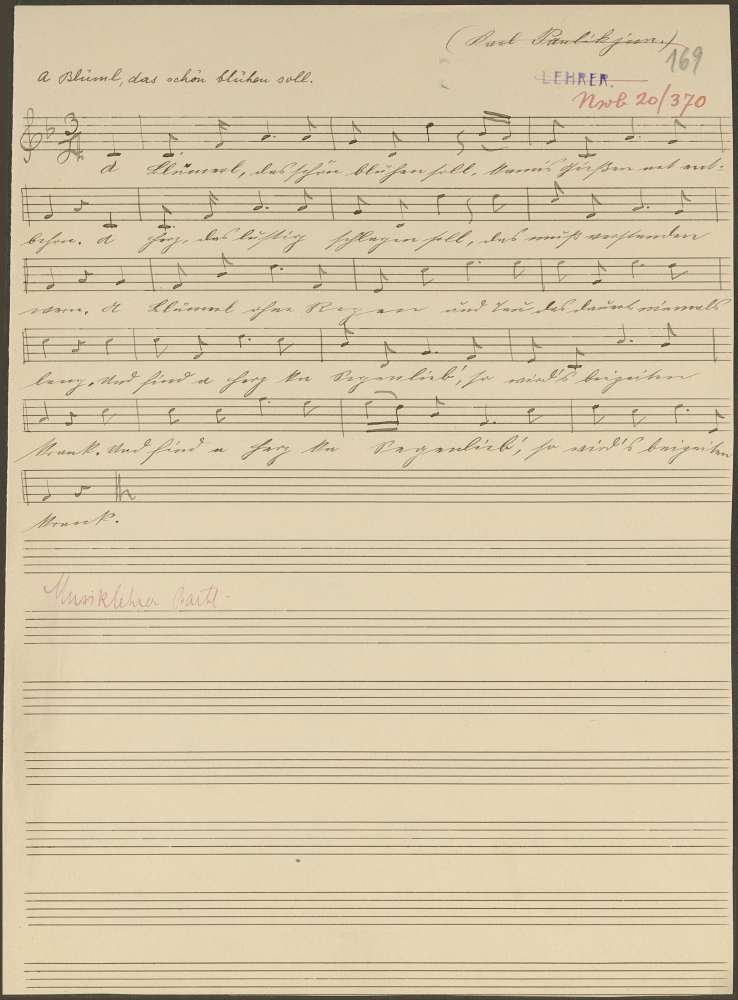 (Karl Paulik jun.)
169
A Blüml, das schön blühen soll.
LEHRER.
Nwb 20/370
3/4
A Blümerl, das schön blühen soll, kann's Gießen net ent-
behrn. A Herz, das lustig schlagen soll, das muß verstanden
wern. A Blümerl ohne Regen und Tau das dauert niemals
lang. Und find a Herz ka Gegenlieb', so wird's beizeiten
krank. Und find a Herz ka Gegenlieb', so wird's beizeiten
krank.
Musiklehrer Bartl